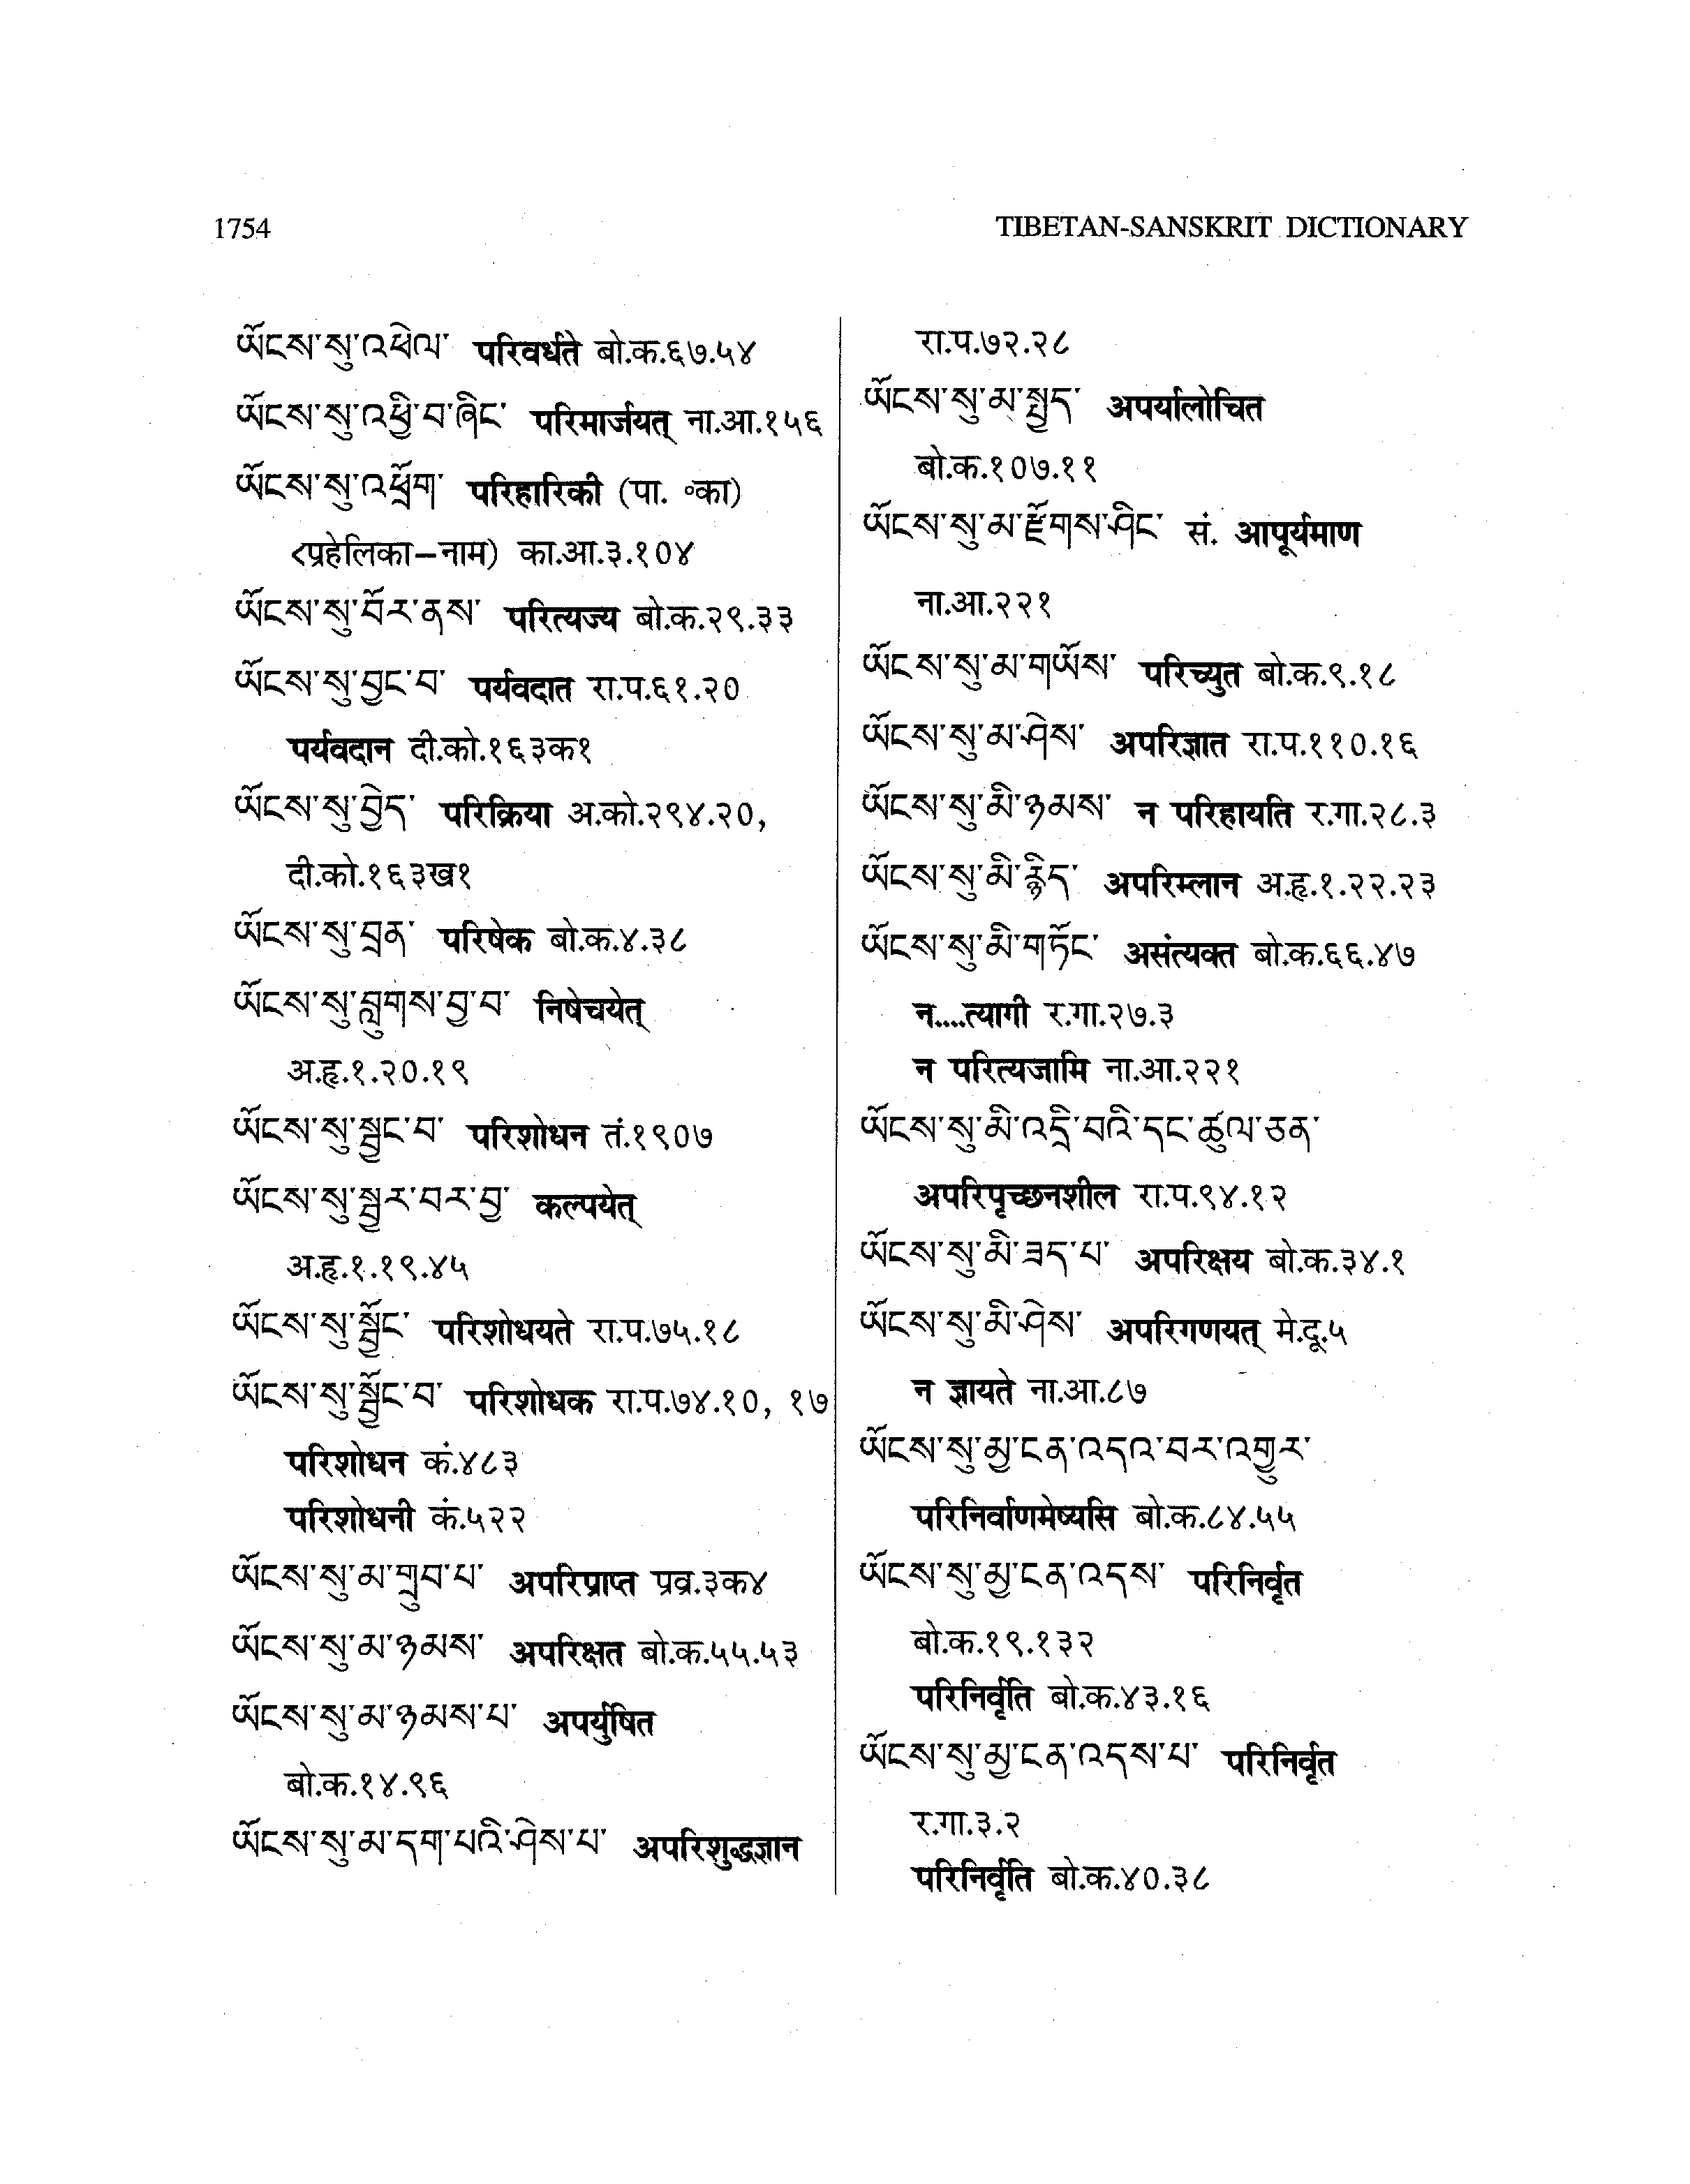 1754
TIBETAN-SANSKRIT DICTIONARY
ཡོངས་སུ་འཕེལ་ परिवर्धते बो.क.६७.५४
ཡོངས་སུ་འཕྱི་བ་ཞིང་ परिमार्जयत् ना.आ.१५६
ཡོངས་སུ་འཕྲོག་ परिहारिकी (पा. ॰का)
<प्रहेलिका–नाम) का.आ.३.१०४
ཡོངས་སུ་བོར་ནས་ परित्यज्य बो.क.२९.३३
ཡོངས་སུ་བྱང་བ་ पर्यवदात रा.प.६१.२०
पर्यवदान दी.को.१६३क१
ཡོངས་སུ་བྱེད་ परिक्रिया अ.को.२९४.२०,
दी.को.१६३ख१
ཡོངས་སུ་བྲན་ परिषेक बो.क.४.३८
ཡོངས་སུ་བླུགས་བྱ་བ་ निषेचयेत्
अ.हृ.१.२०.१९
ཡོངས་སུ་སྦྱང་བ་ परिशोधन तं.१९०७
ཡོངས་སུ་སྦྱར་བར་བྱ་ कल्पयेत्
अ.हृ.१.१९.४५
ཡོངས་སུ་སྦྱོང་ परिशोधयते रा.प.७५.१८
ཡོངས་སུ་སྦྱོང་བ་ परिशोधक रा.प.७४.१०, १७
परिशोधन कं.४८३
परिशोधनी कं.५२२
ཡོངས་སུ་མ་གྲུབ་པ་ अपरिप्राप्त प्रव्र.३क४
ཡོངས་སུ་མ་ཉམས་ अपरिक्षत बो.क.५५.५३
ཡོངས་སུ་མ་ཉམས་པ་ अपर्युषित
बो.क.१४.९६
ཡོངས་སུ་མ་དག་པའི་ཤེས་པ་ अपरिशुद्धज्ञान
रा.प.७२.२८
ཡོངས་སུ་མ་སྤྱད་ अपर्यालोचित
बो.क.१०७.११
ཡོངས་སུ་མ་རྫོགས་ཤིང་ सं. आपूर्यमाण
ना.आ.२२१
ཡོངས་སུ་མ་གཡོས་ परिच्युत बो.क.९.१८
ཡོངས་སུ་མ་ཤེས་ अपरिज्ञात रा.प.११०.१६
ཡོངས་སུ་མི་ཉམས་ न परिहायति र.गा.२८.३
ཡོངས་སུ་མི་རྙིད་ अपरिम्लान अ.हृ.१.२२.२३
ཡོངས་སུ་མི་གཏོང་ असंत्यक्त बो.क.६६.४७
न....त्यागी र.गा.२७.३
न परित्यजामि ना.आ.२२१
ཡོངས་སུ་མི་འདྲི་བའི་དང་ཚུལ་ཅན་
अपरिपृच्छनशील रा.प.९४.१२
ཡོངས་སུ་མི་ཟད་པ་ अपरिक्षय बो.क.३४.१
ཡོངས་སུ་མི་ཤེས་ अपरिगणयत् मे.दू.५
न ज्ञायते ना.आ.८७
ཡོངས་སུ་མྱ་ངན་འདའ་བར་འགྱུར་
परिनिर्वाणमेष्यसि बो.क.८४.५५
ཡོངས་སུ་མྱ་ངན་འདས་ परिनिर्वृत
बो.क.१९.१३२
परिनिर्वृति बो.क.४३.१६
ཡོངས་སུ་མྱ་ངན་འདས་པ་ परिनिर्वृत
र.गा.३.२
परिनिर्वृति बो.क.४०.३८